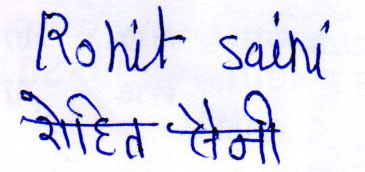 Rohit saini
रोहित सैनी